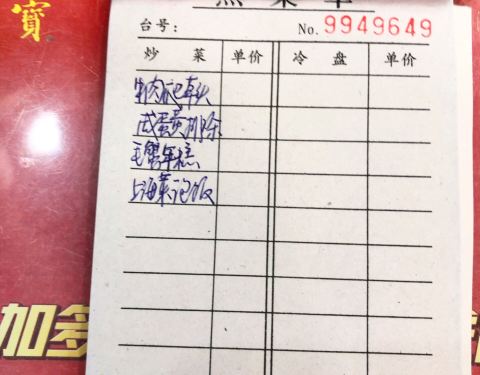 寶
点菜单
台号: No.9949649
炒菜 单价 冷盘 单价
咸蛋黄排条
毛蟹年糕
上海菜泡饭
加多